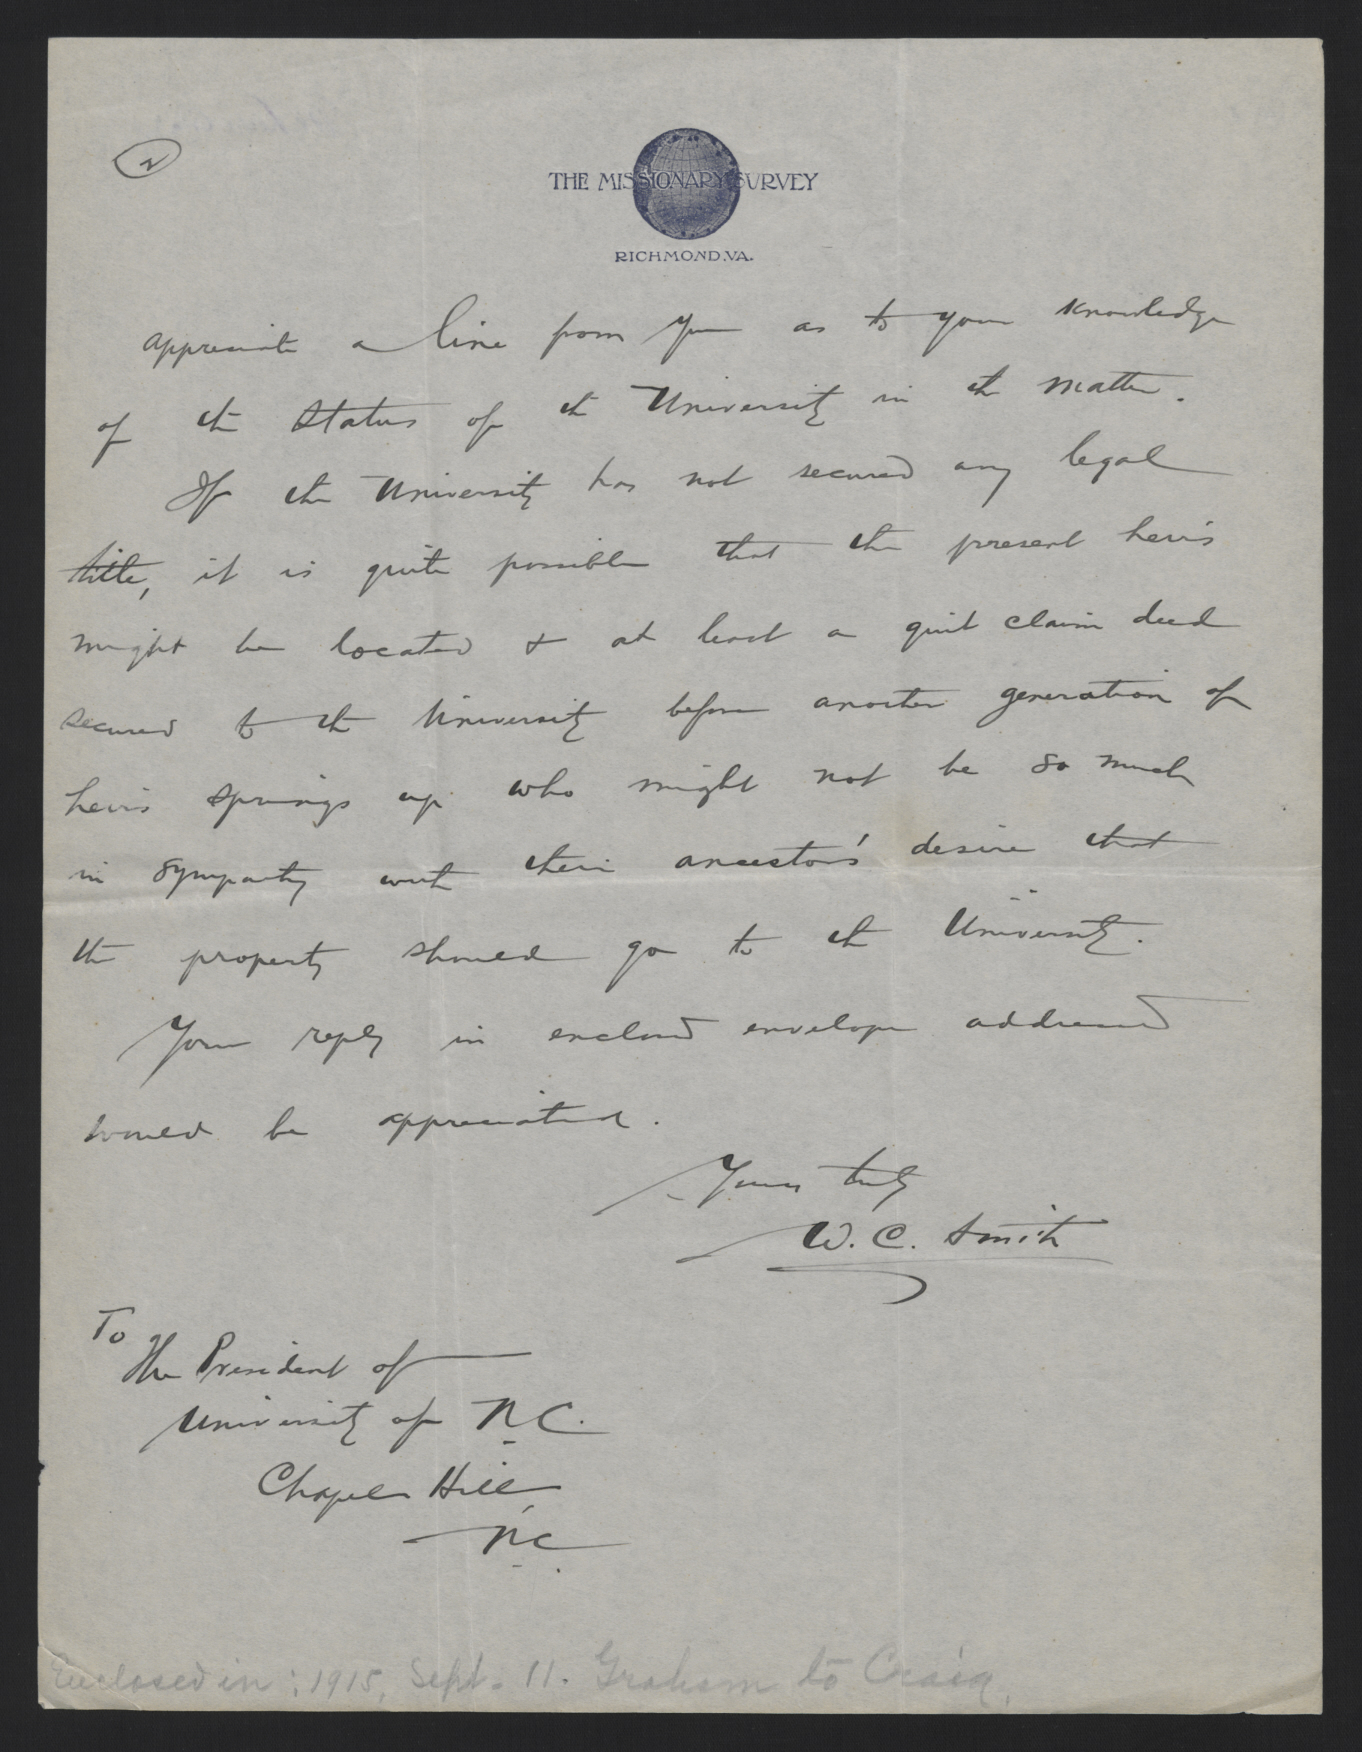 2
THE MISSIONARY SURVEY
RICHMOND, VA.
appreciate a line from you as to your knowledge
of the status of the University in the matter.
If the University has not secured any legal
title, it is quite possible that the present heirs
might be located & at least a quit claim deed
secured to the University before another generation of
heirs springs up who might not be so much
in sympathy with their ancestors' desire that
the property should go to the University.
Your reply in enclosed envelope addressed
would be appreciated.
Yours truly
W. C. Smith
To
The President of
University of N.C.
Chapel Hill
N.C.
Enclosed in: 1915, Sept. 11. Graham to Craig.